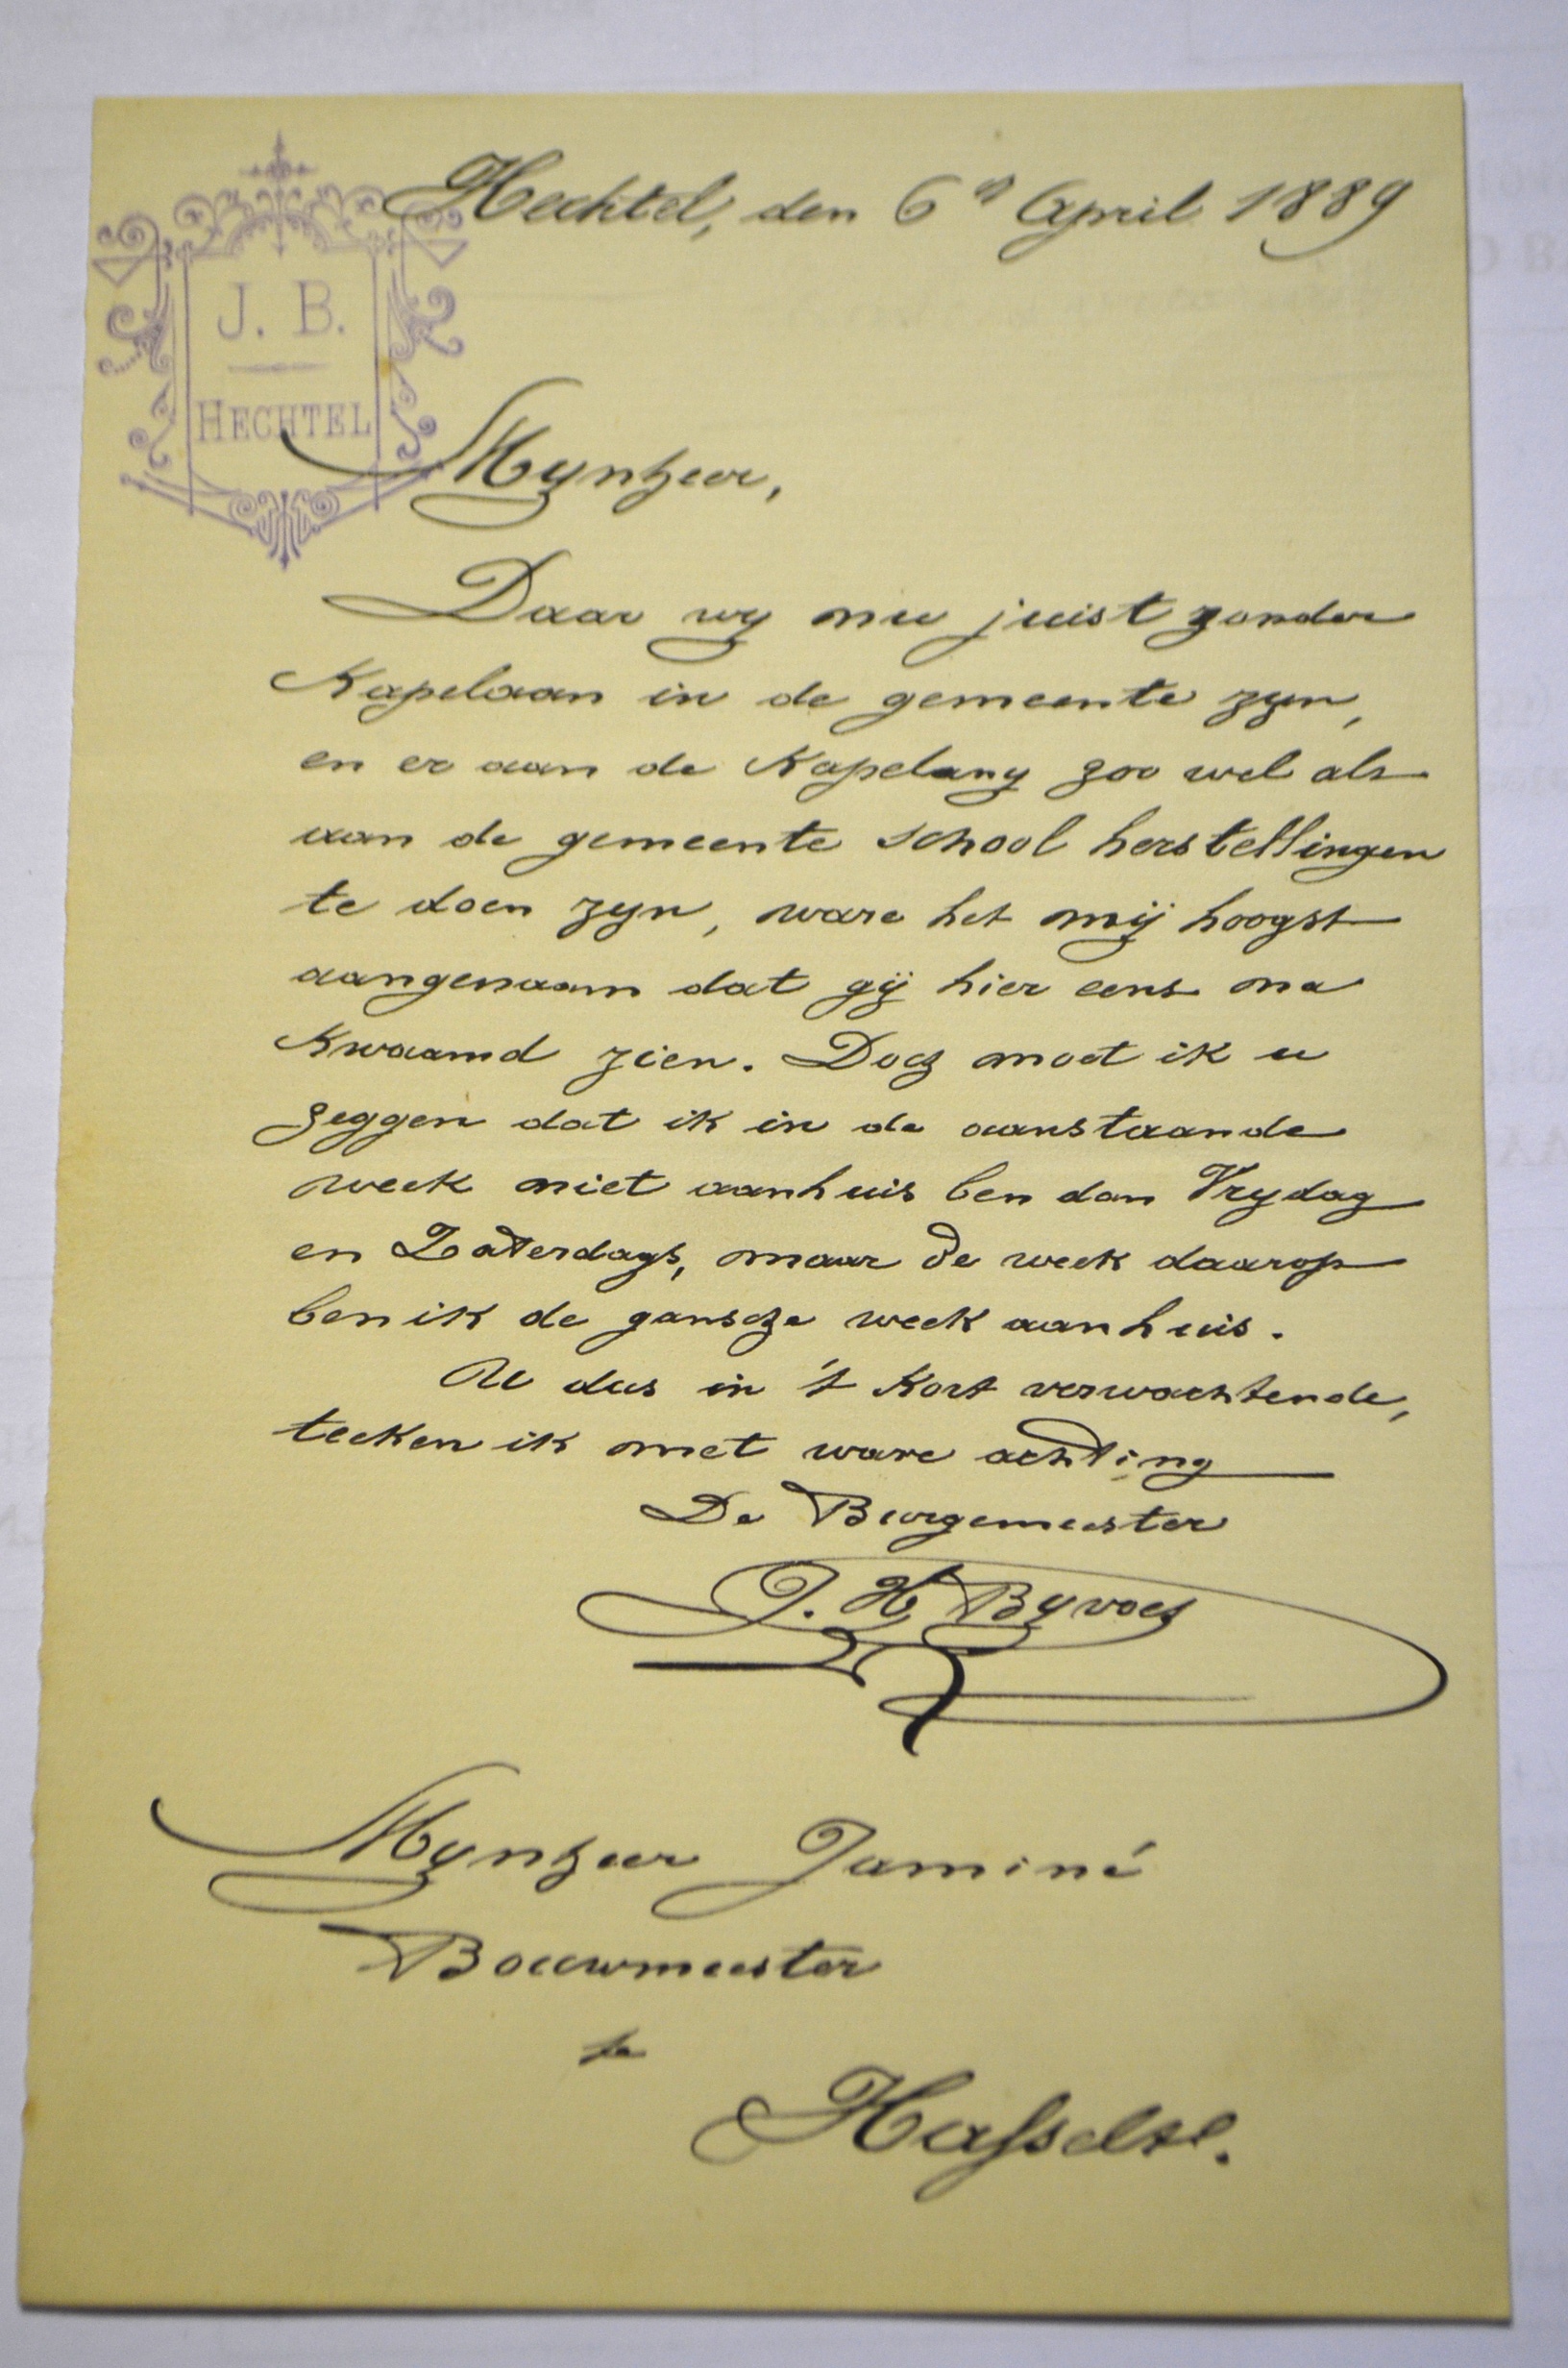 Hechtel, den 6n April 1889
J. B.
HECHTEL
Mynheer,
Daar wy nu juist zonder
Kapelaan in de gemeente zyn,
en er aan de Kapelany zoo wel als
aan de gemeente school herstellingen
te doen zyn, ware het mij hoogst
aangenaam dat gij hier eens na
Kwaamd zien. Doch moet ik u
zeggen dat ik in de aanstaande
week niet aanhuis ben dan Vrydag
en Zaterdags, maar de week daarop
ben ik de gansche week aanhuis.
U dus in 't Kort verwachtende,
teeken ik met ware achting
De Burgemeester
J. H. Byvoet
Mynheer Jaminé
Bouwmeester
te
Hasselt.